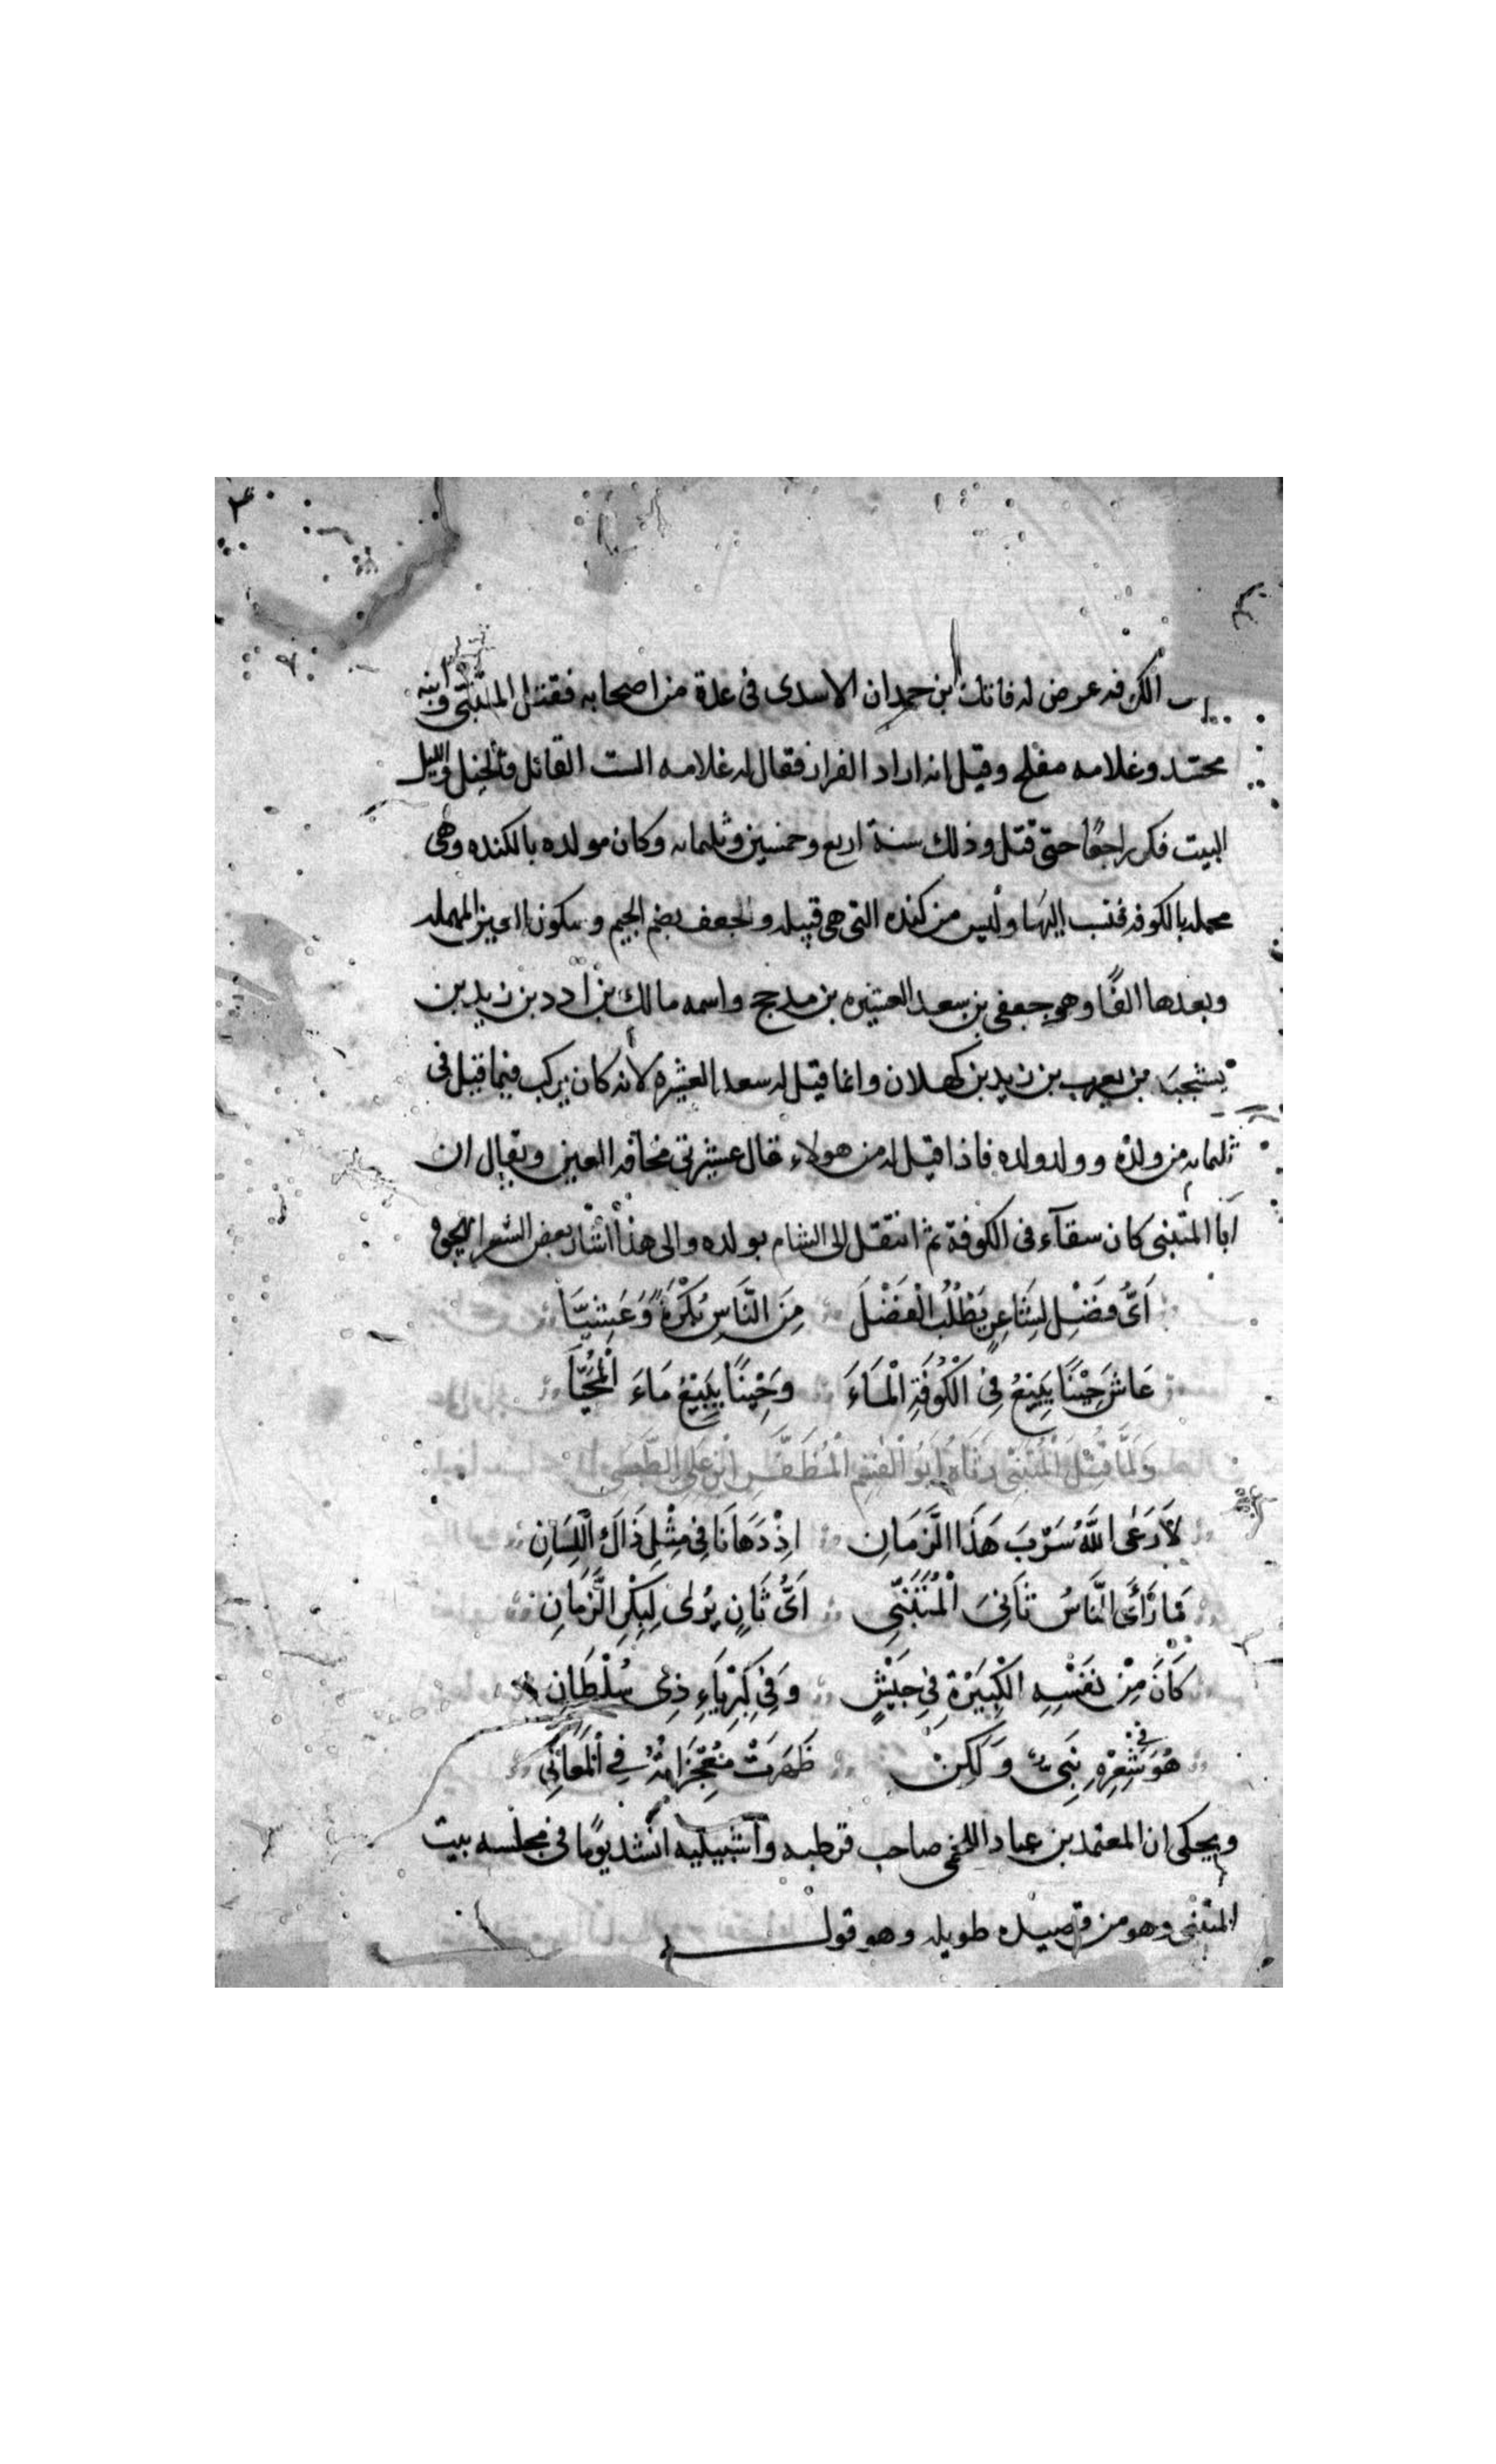 الكوفه عرض له فاتك ابن حمدان الاسدى فى عدة من اصحابه فقتل المتنبّى وابنه
محتد وغلامه مفلح وقيل انه اراد الفرار فقال له غلامه الست القائل فالخيل والليل
البيت فكر راجعًا حتى قتل وذلك سنة اربع وخمسين وثلمايه وكان مولده بالكنده وهى
محمله بالكوفه فنسب اليها وليس من كنده التى هى قبيله والجعف بضم الجيم وسكون العين المهمله
وبعدها الفًا وهو جعفى بن سعد العشيره بن مذحج واسمه مالك بن ادد بن زيد بن
يشجب بن يعرب بن زيد بن كهلان وانما قيل له سعد العشيرة لأنه كان يركب فيما قيل فى
ثلمايه من ولده وولد ولده فاذا قيل له من هولاء قال عشيرتى مخافه العين ويقال ان
ابا المتنبى كان سقآء فى الكوفة ثم انتقل الى الشام بولده والى هذا اشار بعض الشعرا
اَىُّ فَضْلٍ لِشَاعِرٍ يَطْلُبُ الْفَضْلَ مِنَ النَّاسِ بُكْرَةً وَعَشِيَّاً
عَاشَ حِيْنًا يَبِيْعُ فِى الْكُوْفَةِ الْمَاءَ وَحِيْنًا يَبِيْعُ مَاءَ الْمُحَيَّا
وَلَمَّا قُتِلَ الْمُتَنَبِّى رَثَاهُ اَبُو الْقٰسِمِ الْمُظَفَّرِ ابْنِ عَلِى الطَّبَسِى
لاَ رَعَى اللّٰهُ سَرْبَ هَذَا الزَّمَانِ اِذْ دَهَانَا فِى مِثْلِ ذَاكَ اللِّسَانِ
مَا رَأَى النَّاسُ ثَانِىَ الْمُتَنَبِّى اَىُّ ثَانٍ يُرٰى لِبِكْرِ الزَّمَانِ
كَانَ مِنْ نَفْسِهِ الْكَبِيْرَةِ فِى جَيْشٍ وَفِى كِبْرِيَاءِ ذِى سُلْطَانِ
هُوَ فِى شِعْرِهِ نَبِىٌّ وَلَكِنْ ظَهَرَتْ مُعْجِزَاتُهُ فِى الْمَعَانِى
ويحكى ان المعتمد بن عباد اللخمى صاحب قرطبه واشبيليه انشد يومًا فى مجلسه بيت
المتنبى وهو من قصيده طويله وهو قوله